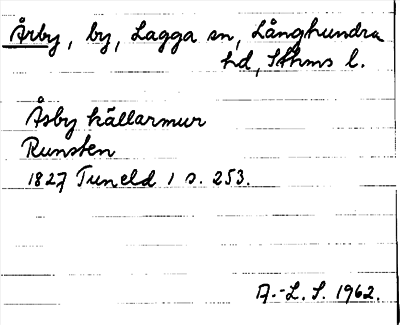 Årby, by, Lagga sn, Långhundra
hd, Sthms l.
Åsby källarmur
Runsten
1827 Tuneld 1 s. 253.
A.-L. S. 1962.